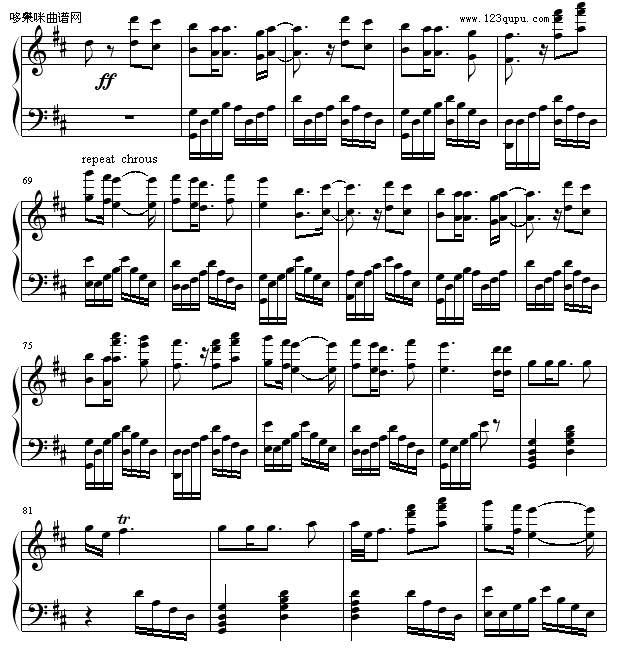 哆来咪曲谱网
www.123qupu.com
ff
repeat chrous
69
75
81
tr